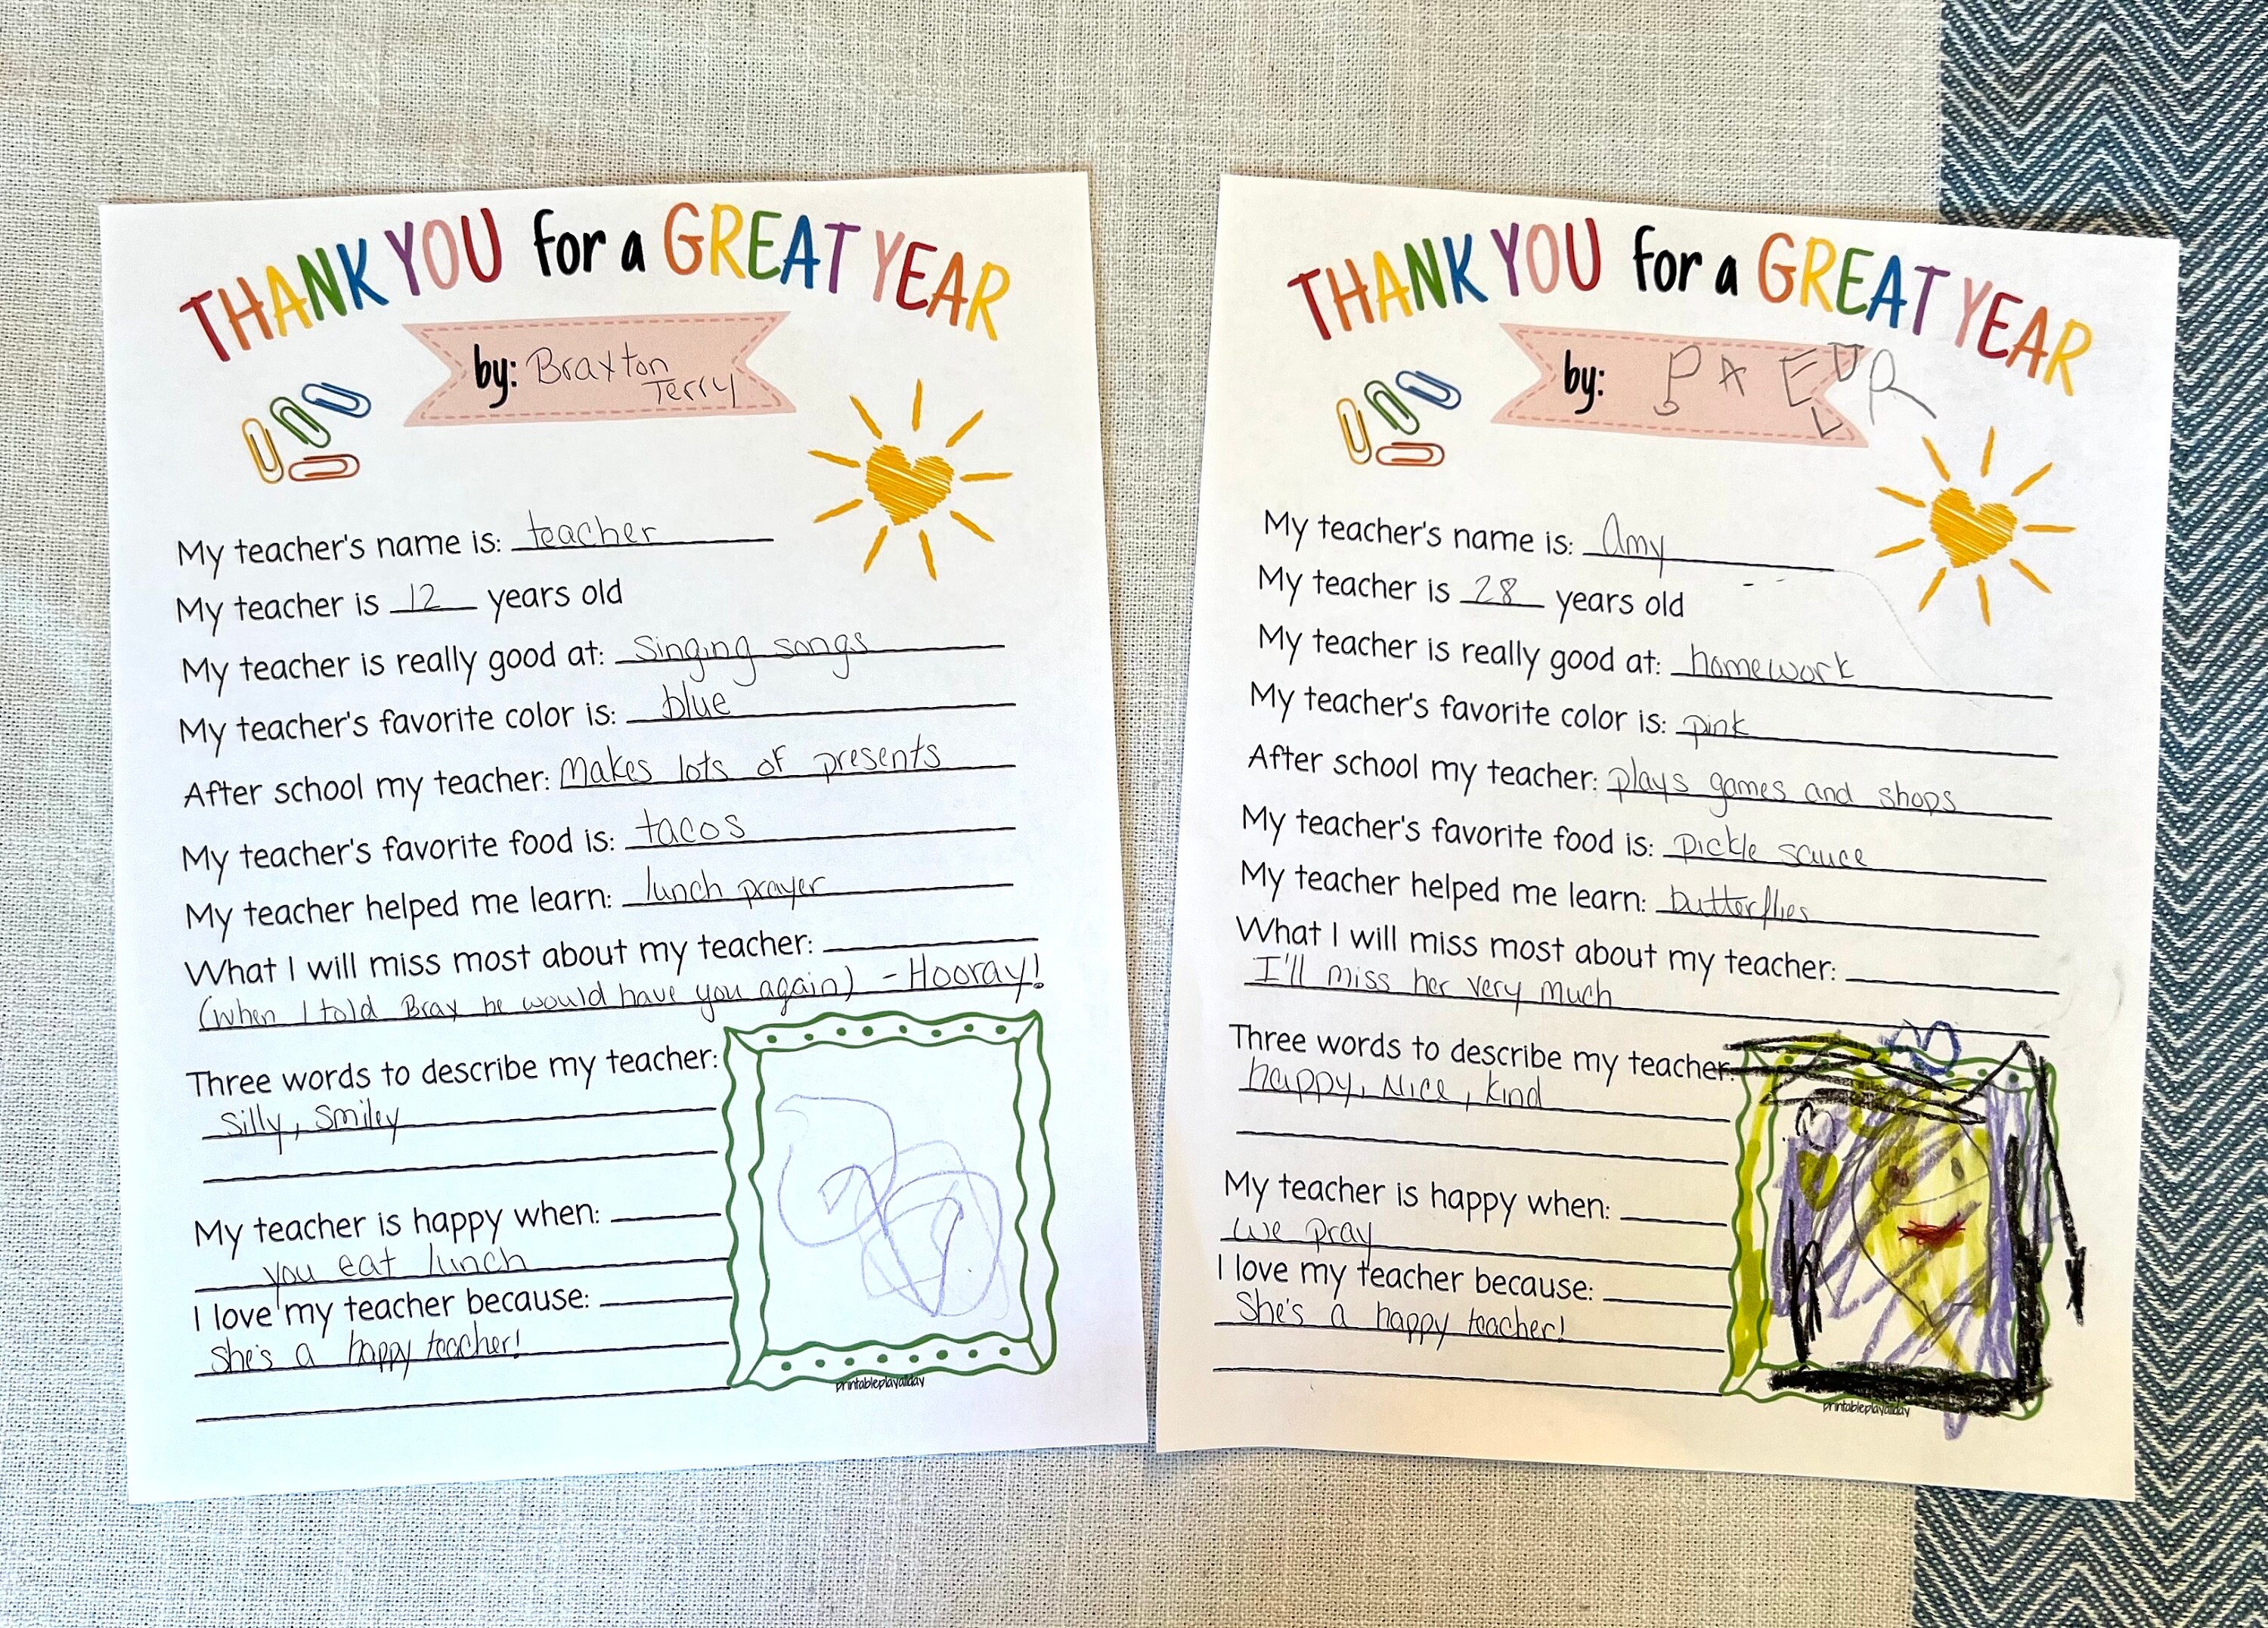 THANK YOU for a GREAT YEAR
by: Braxton
Terry
My teacher's name is: teacher
My teacher is 12 years old
My teacher is really good at: singing songs
My teacher's favorite color is: blue
After school my teacher: makes lots of presents
My teacher's favorite food is: tacos
My teacher helped me learn: lunch prayer
What I will miss most about my teacher:
(when I told Bray he would have you again) - Hooray!
Three words to describe my teacher:
silly, smiley
My teacher is happy when:
you eat lunch
I love my teacher because:
she's a happy teacher!
printableplayallday
THANK YOU for a GREAT YEAR
by:
My teacher's name is: Amy
My teacher is 28 years old
My teacher is really good at: homework
My teacher's favorite color is: pink
After school my teacher: plays games and shops
My teacher's favorite food is: pickle sauce
My teacher helped me learn: butterflies
What I will miss most about my teacher:
I'll miss her very much
Three words to describe my teacher:
happy, nice, kind
My teacher is happy when:
we pray
I love my teacher because:
she's a happy teacher!
printableplayallday